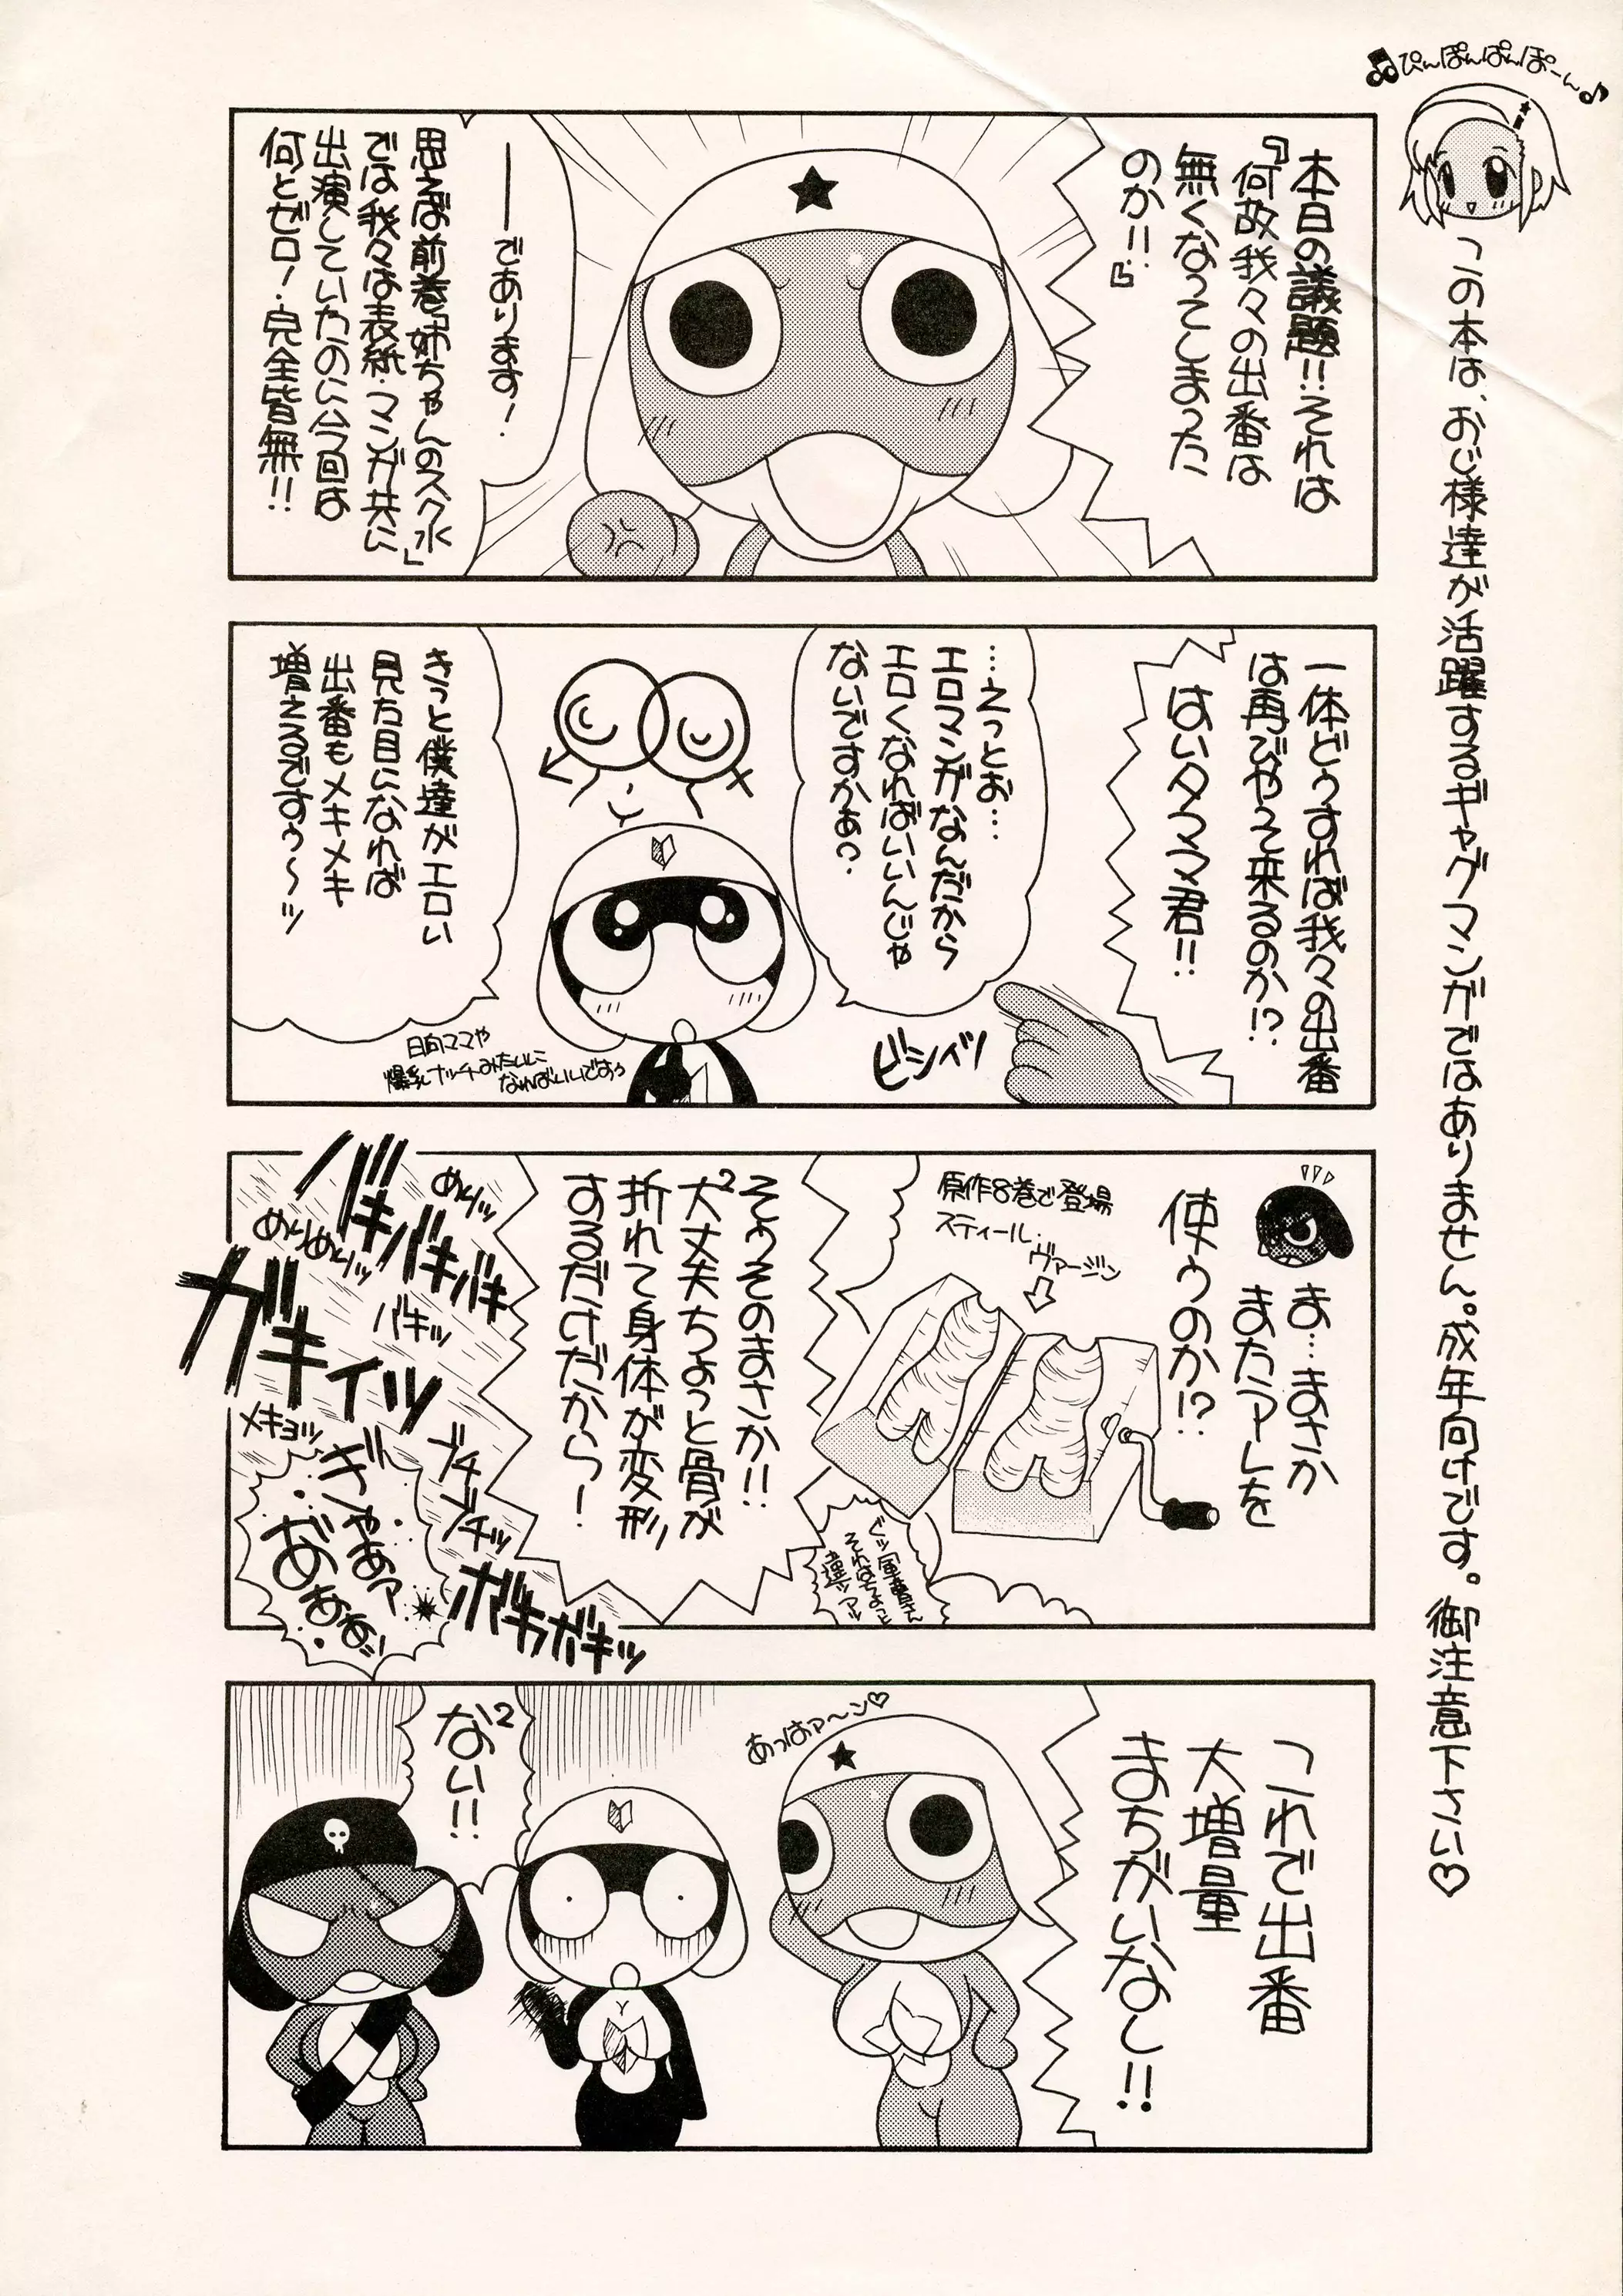 ぴんぽんぱんぽーん
この本は、おじ様達が活躍するギャグマンガではありません。成年向けです。御注意下さい♡
本日の議題!!それは
『何故我々の出番は
無くなってしまった
のか!!』
――であります!
思えば前巻「姉ちゃんのスク水」
では我々は表紙・マンガ共に
出演していたのに今回は
何とゼロ!完全皆無!!
一体どぅすれば我々の出番
は再びやって来るのか!?
はいタママ君!!
ビシィッ
…えっとお…
エロマンガなんだから
エロくなればいいんじゃ
ないですかぁ?
きっと僕達がエロい
見た目になれば
出番もメキメキ
増えるですぅ~ッ
日向ママや
爆乳ナッチーみたいに
なればいいですぅ
ま…まさか
またアレを
使うのか!?
原作8巻で登場
スティール・
ヴァージン
ぐッ軍曹さん
それはちょっと
違ッアッ
そぅそのまさか!!
大丈夫2ちょっと骨が
折れて身体が変形
するだけだから!
めりッ
めりめりッ
バキバキバキ
バキッ
ガキィッ
メキョッ
ブチ
ブチッ
ぎゃあァ
あああ!!
ボキガキッ
これで出番
大増量
まちがいなし!!
あっはァ~ン♡
ない2!!